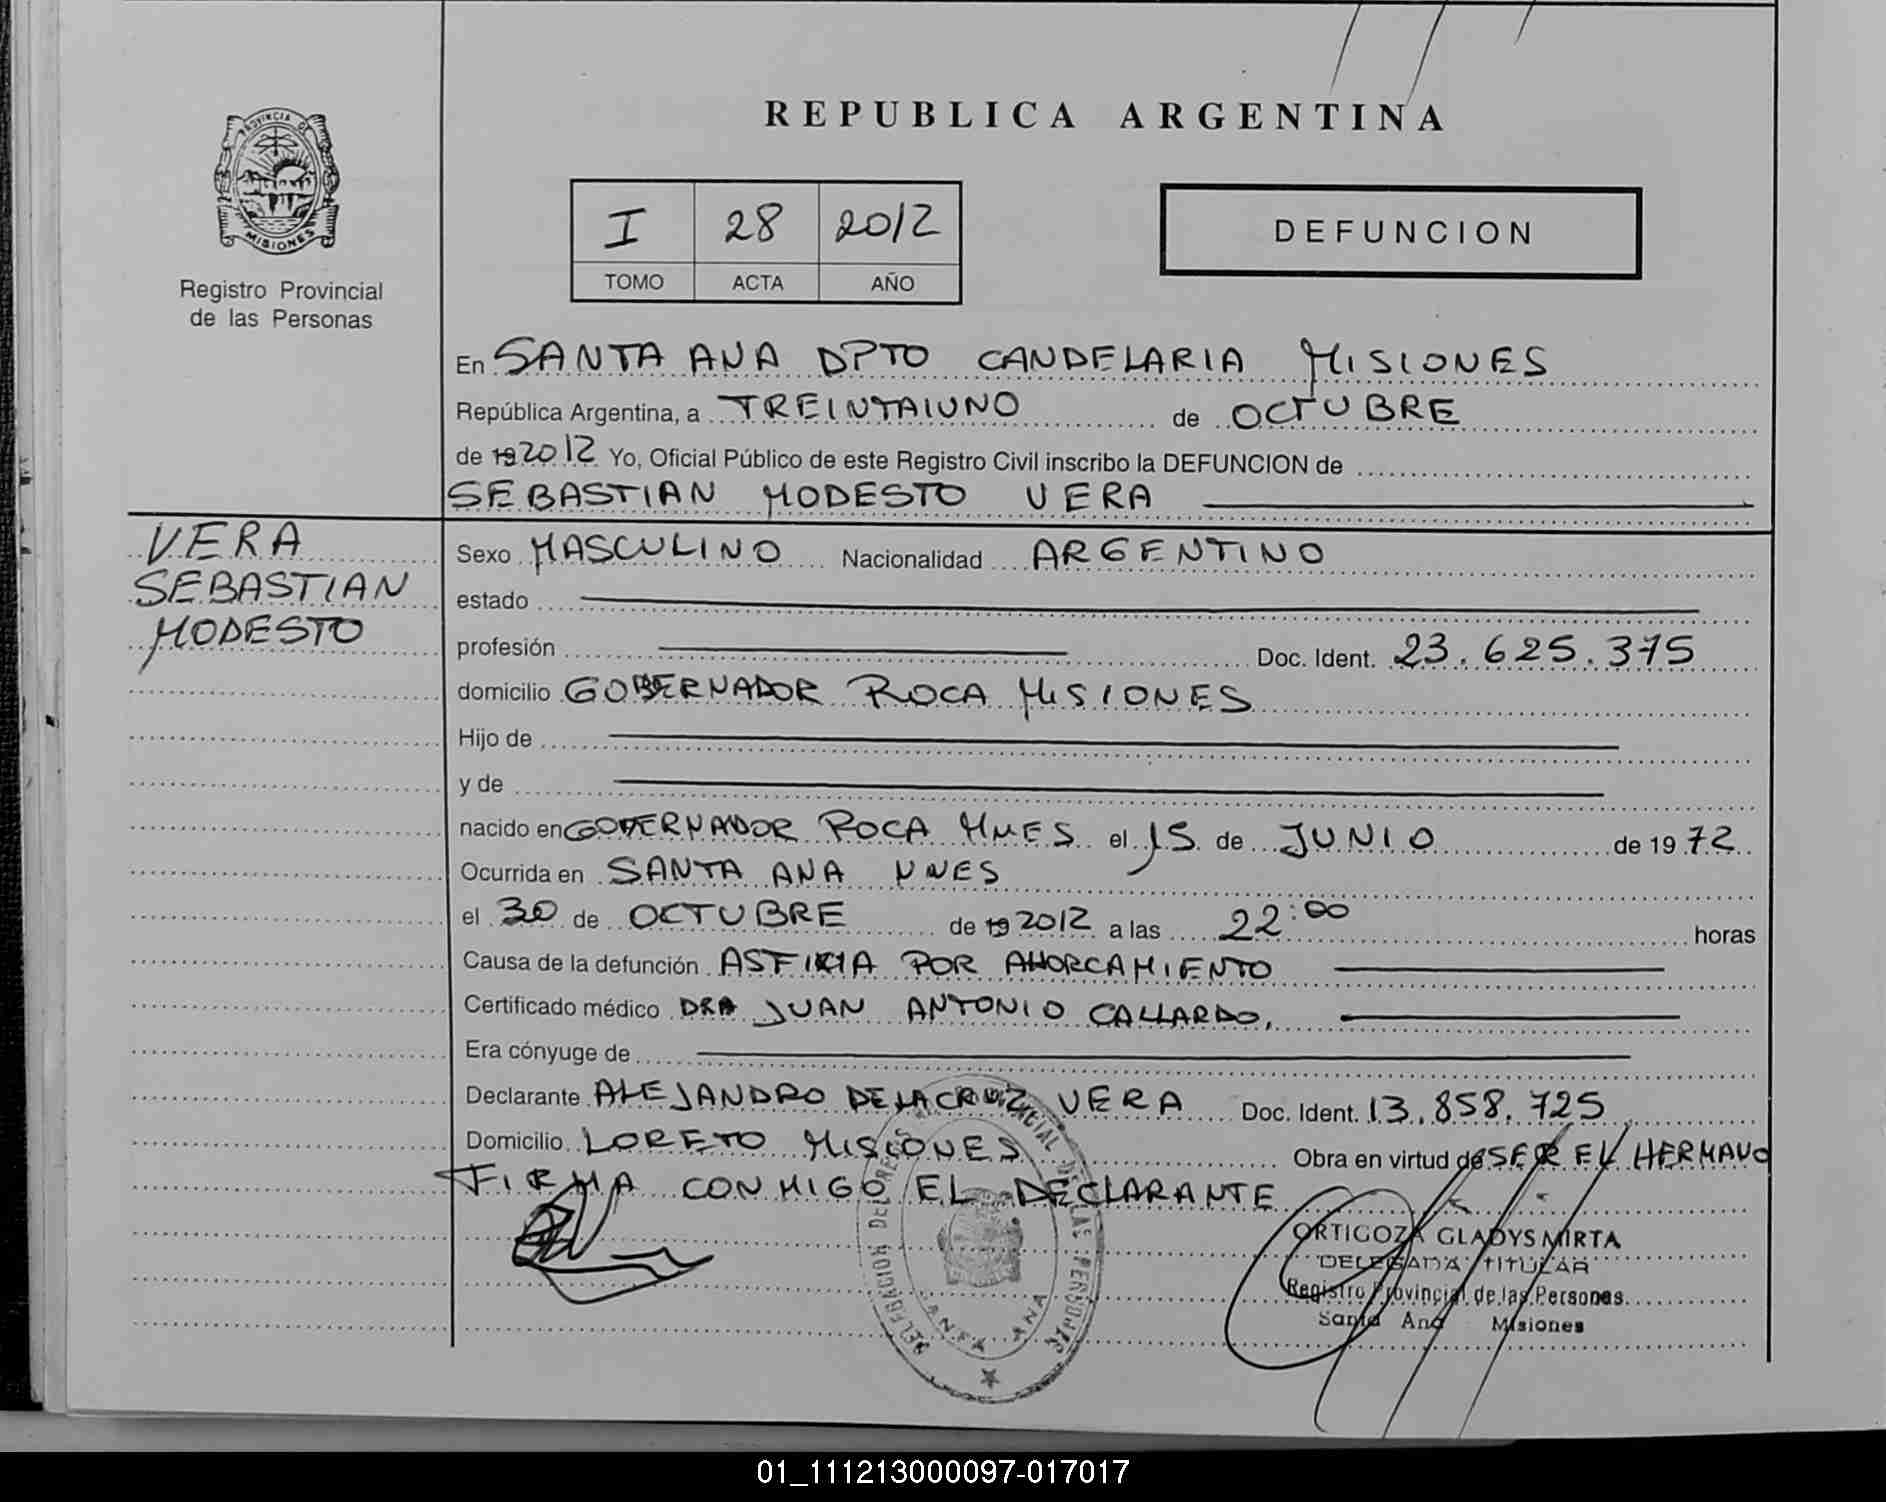 REPUBLICA ARGENTINA
PROVINCIA DE
MISIONES
Registro Provincial
de las Personas
I 28 2012
TOMO ACTA AÑO
DEFUNCION
En SANTA ANA DPTO CANDELARIA MISIONES
República Argentina, a TREINTAIUNO de OCTUBRE
de 19 2012 Yo, Oficial Público de este Registro Civil inscribo la DEFUNCION de
SEBASTIAN MODESTO VERA
VERA
SEBASTIAN
MODESTO
Sexo MASCULINO Nacionalidad ARGENTINO
estado
profesión Doc. Ident. 23.625.375
domicilio GOBERNADOR ROCA MISIONES
Hijo de
y de
nacido en GOBERNADOR ROCA MNES el 15 de JUNIO de 1972
Ocurrida en SANTA ANA MNES
el 30 de OCTUBRE de 19 2012 a las 22:00 horas
Causa de la defunción ASFIXIA POR AHORCAMIENTO
Certificado médico DRA JUAN ANTONIO GALLARDO,
Era cónyuge de
Declarante ALEJANDRO DE LA CRUZ VERA Doc. Ident. 13.858.725
Domicilio LORETO MISIONES Obra en virtud de SER EL HERMANO
FIRMA CONMIGO EL DECLARANTE
ORTIGOZA GLADYS MIRTA
DELEGADA TITULAR
Registro Provincial de las Personas
Santa Ana Misiones
DELEGACION DEL REGISTRO PROVINCIAL DE LAS PERSONAS
SANTA ANA
01_111213000097-017017